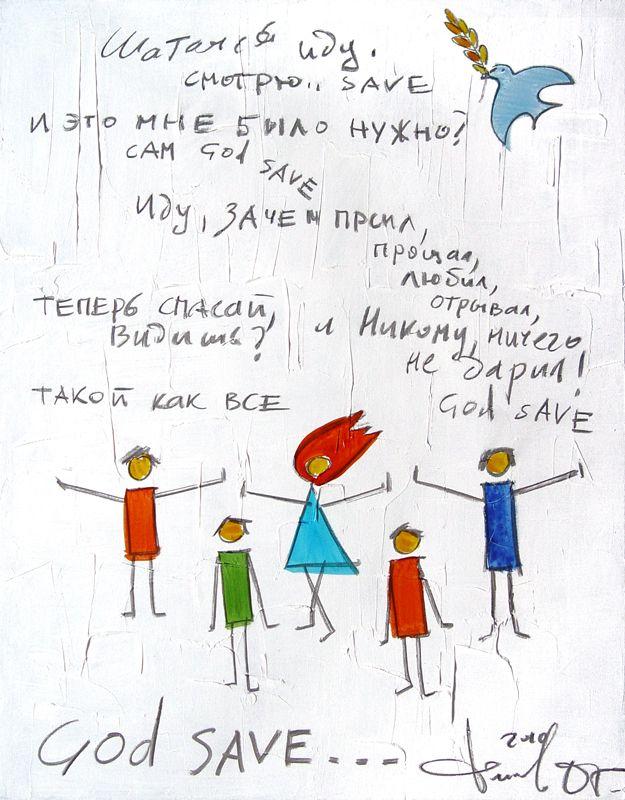 Шатаясь иду.
смотрю.. SAVE
И ЭТО МНЕ БЫЛО НУЖНО?
САМ God SAVE
Иду, ЗАЧЕМ ПРСИЛ,
прощал,
любил,
отрывал,
ТЕПЕРЬ СПАСАЙ,
Видишь?
и Никому, ничего
не дарил!
ТАКОЙ КАК ВСЕ
God SAVE
God SAVE...
2010